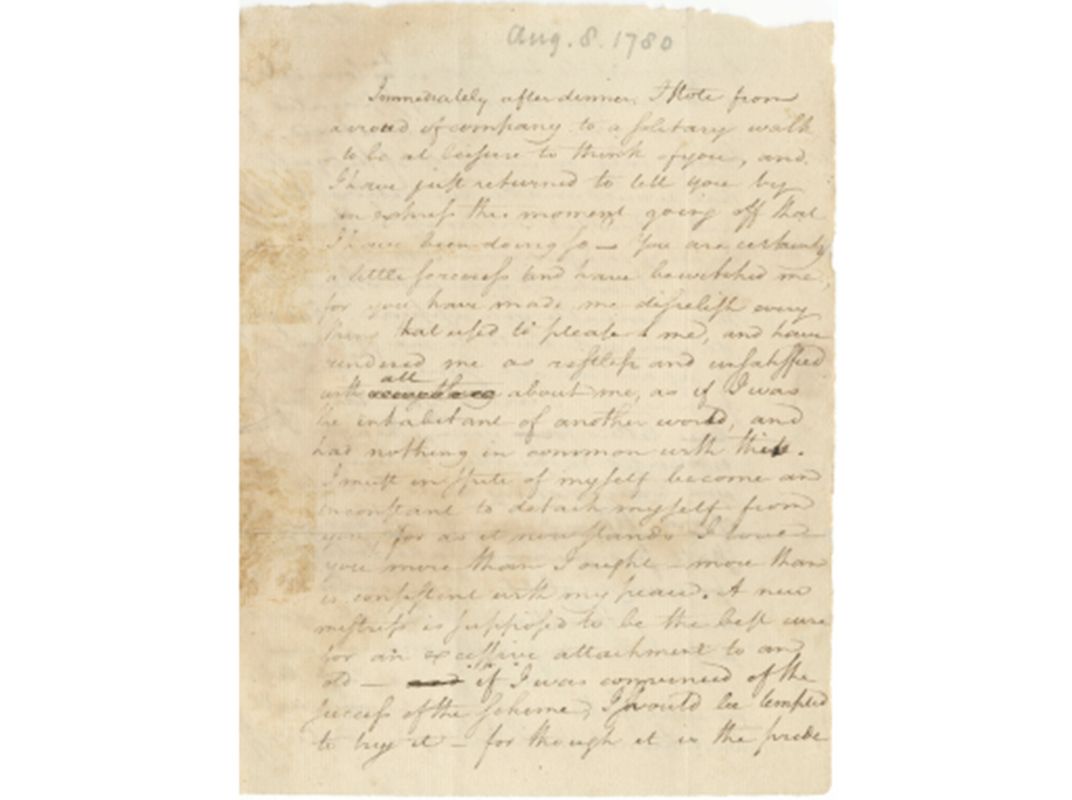 Aug. 8. 1780
Immediately after dinner, I stole from
a croud of company to a solitary walk
to be at leisure to think of you, and
I have just returned to tell you by
an express this moment going off that
I have been doing so — You are certainly
a little sorceress and have bewitched me,
for you have made me disrelish every
thing that used to please me, and have
rendered me as restless and unsatisfied
with all about me, as if I was
the inhabitant of another world, and
had nothing in common with this.
I must in spite of myself become an
inconstant to detach myself from
you, for as it now stands I love
you more than I ought — more than
is consistent with my peace. A new
mistress is supposed to be the best cure
for an excessive attachment to an
old — if I was convinced of the
success of the scheme, I would be tempted
to try it — for though it is the pride